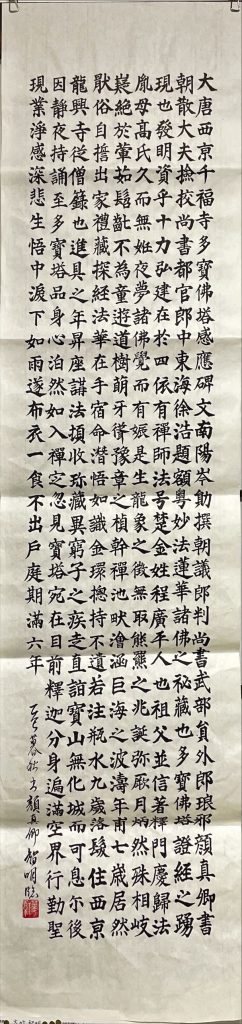 大唐西京千福寺多寶佛塔感應碑文南陽岑勛撰朝議郎判尚書武部員外郎琅邪顏真卿書
朝散大夫撿校尚書都官郎中東海徐浩題額粵妙法蓮華諸佛之秘藏也多寶佛塔證經之踴
現也發明資乎十力弘建在於四依有禪師法号楚金姓程廣平人也祖父並信著釋門慶歸法
胤母高氏久而無姙夜夢諸佛覺而有娠是生龍象之徵無取熊羆之兆誕弥厥月炳然殊相岐
嶷絕於葷茹髫齔不為童遊道樹萌牙聳豫章之楨幹禪池畎澮涵巨海之波濤年甫七歲居然
猒俗自誓出家禮藏探經法華在手宿命潛悟如識金環揔持不遺若注瓶水九歲落髮住西京
龍興寺從僧籙也進具之年昇座講法頓收珎藏異窮子之疾走直詣寶山無化城而可息尒後
因靜夜持誦至多寶塔品身心泊然如入禪定忽見寶塔宛在目前釋迦分身遍滿空界行勤聖
現業淨感深悲生悟中淚下如雨遂布衣一食不出戶庭期滿六年
暮秋顏真卿智明臨